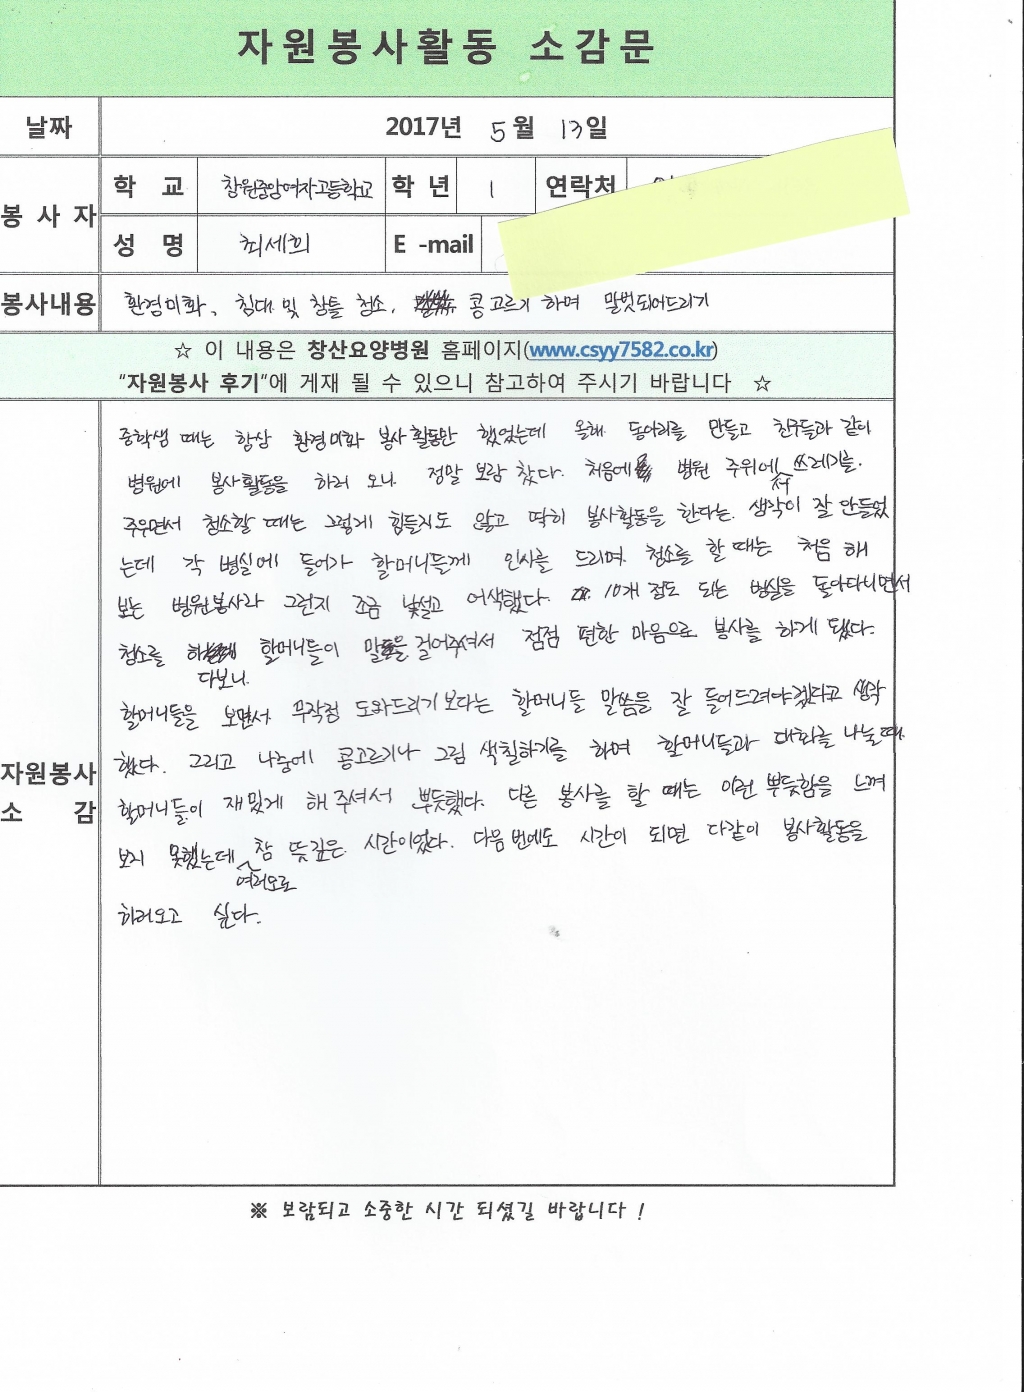 자원봉사활동 소감문
날짜 2017년 5월 13일
봉사자 학 교 창원중앙여자고등학교 학 년 1 연락처
성 명 최세희 E -mail
봉사내용 환경미화, 침대 및 창틀 청소, 콩고르기 하며 말벗되어드리기
☆ 이 내용은 창산요양병원 홈페이지(www.csyy7582.co.kr)
"자원봉사 후기"에 게재 될 수 있으니 참고하여 주시기 바랍니다 ☆
자원봉사 소 감
중학생 때는 항상 환경미화 봉사활동만 했었는데 올해 동아리를 만들고 친구들과 같이
병원에 봉사활동을 하러 오니 정말 보람 찼다. 처음에 병원 주위에서 쓰레기를
주우면서 청소할 때는 그렇게 힘들지도 않고 딱히 봉사활동을 한다는 생각이 잘 안들었
는데 각 병실에 들어가 할머니들께 인사를 드리며 청소를 할 때는 처음 해
보는 병원봉사라 그런지 조금 낯설고 어색했다. 10개 정도 되는 병실을 돌아다니면서
청소를 하다보니 할머니들이 말을 걸어주셔서 점점 편한 마음으로 봉사를 하게 됐다.
할머니들을 보면서 무작정 도와드리기 보다는 할머니들 말씀을 잘 들어드려야겠다고 생각
했다. 그리고 나중에 콩고르기나 그림 색칠하기를 하며 할머니들과 대화를 나눌때
할머니들이 재밌게 해 주셔서 뿌듯했다. 다른 봉사를 할 때는 이런 뿌듯함을 느껴
보지 못했는데 여러모로 참 뜻깊은 시간이었다. 다음번에도 시간이 되면 다같이 봉사활동을
하러오고 싶다.
※ 보람되고 소중한 시간 되셨길 바랍니다 !